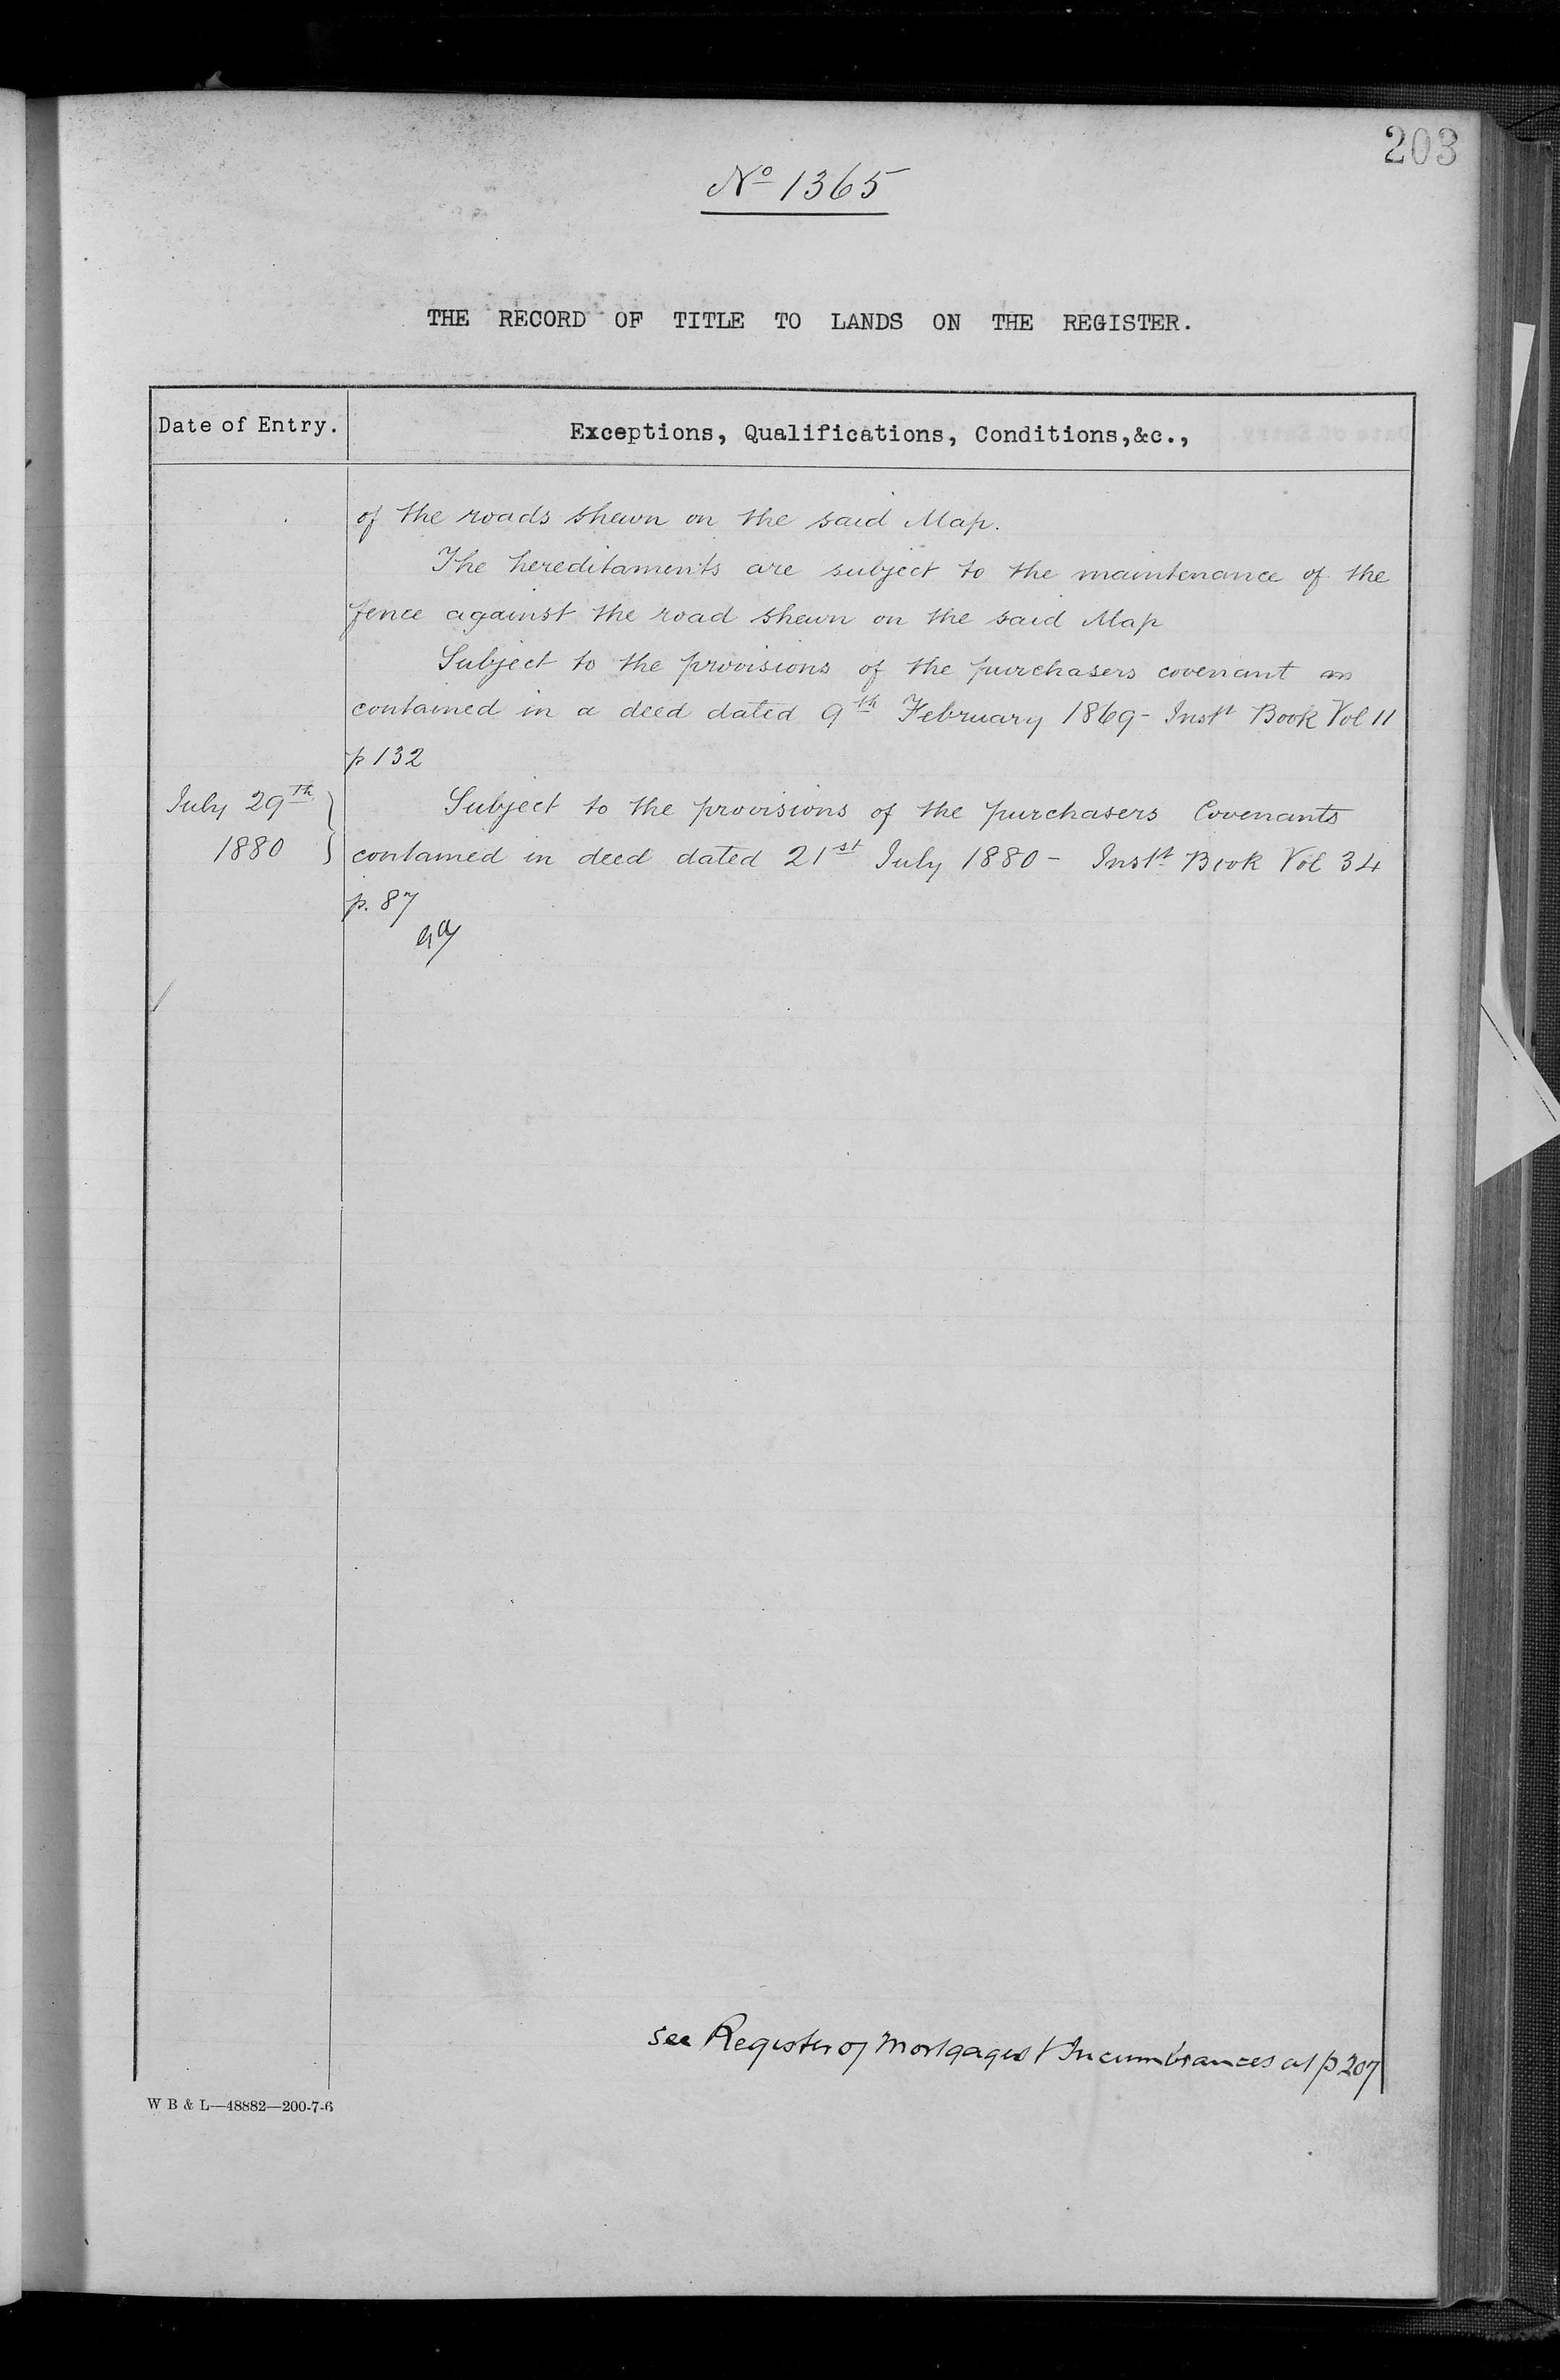 203
No 1365
THE RECORD OF TITLE TO LANDS ON THE REGISTER.
Date of Entry.
Exceptions, Qualifications, Conditions,&c.,
of the roads shewn on the said Map.
The hereditaments are subject to the maintenance of the
fence against the road shewn on the said Map
Subject to the provisions of the purchasers covenant as
contained in a deed dated 9th February 1869 - Instt Book Vol 11
p 132
July 29th
1880
Subject to the provisions of the purchasers Covenants
contained in deed dated 21st July 1880 - Instt Book Vol 34
p. 87
see Register of Mortgages & Incumbrances at p 207
W B & L—48882—200-7-6